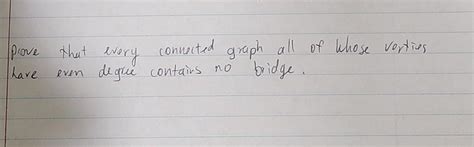 Prove that every connected graph all of whose vertices
have even degree contains no bridge.